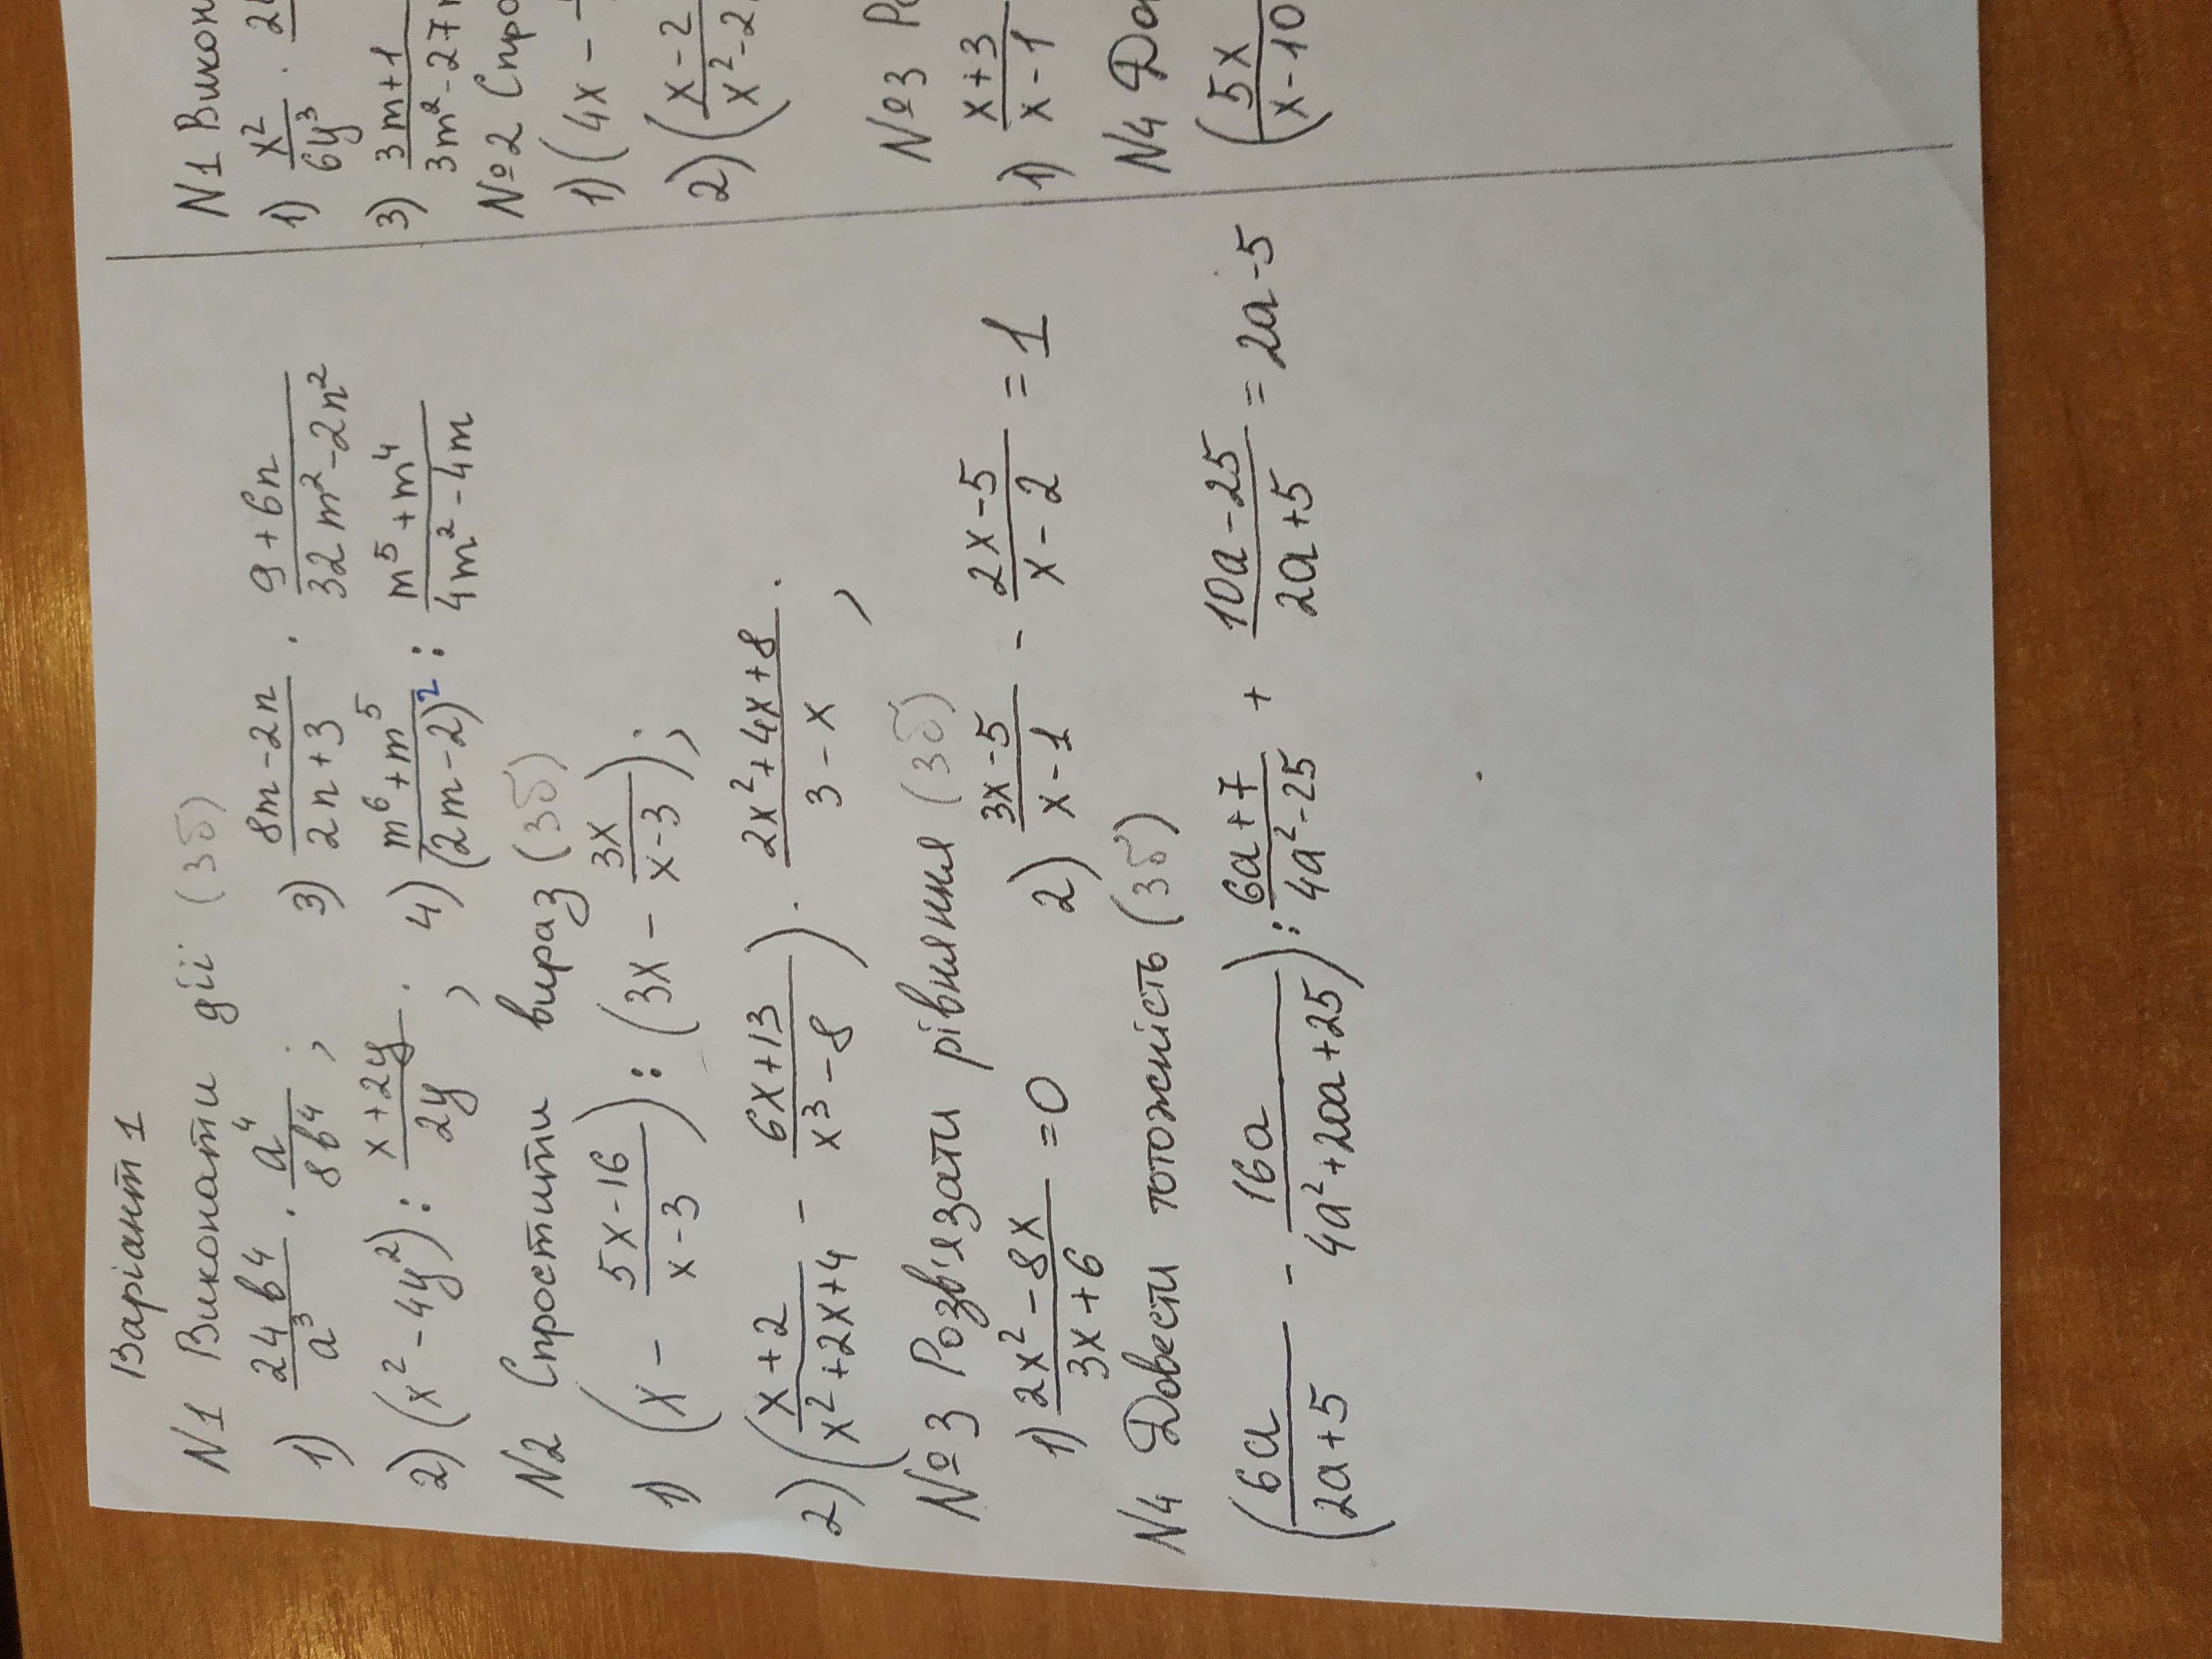 Варіант 1
N1 Виконати дії (3б)
1) 24b⁴/a³ · a⁴/8b⁴; 3) 8m-2n/2n+3 · 9+6n/32m²-2n²
2) (x²-4y²) : x+2y/2y; 4) m⁶+m⁵/(2m-2)² : m⁵+m⁴/4m²-4m
N2 Спростити вираз (3б)
1) (x - 5x-16/x-3) : (3x - 3x/x-3);
2) (x+2/x²+2x+4 - 6x+13/x³-8) · 2x²+4x+8/3-x;
№3 Розв'язати рівняння (3б)
1) 2x²-8x/3x+6 =0 2) 3x-5/x-1 - 2x-5/x-2 = 1
N4 Довести тотожність (3б)
(6a/2a+5 - 16a/4a²+20a+25) : 6a+7/4a²-25 + 10a-25/2a+5 = 2a-5
N1
1) x²/6y³ ·
3) 3m+1
№2
1) (4x -
2) (x-2
№3
1) x+3/x-1
N4
(5x/x-10